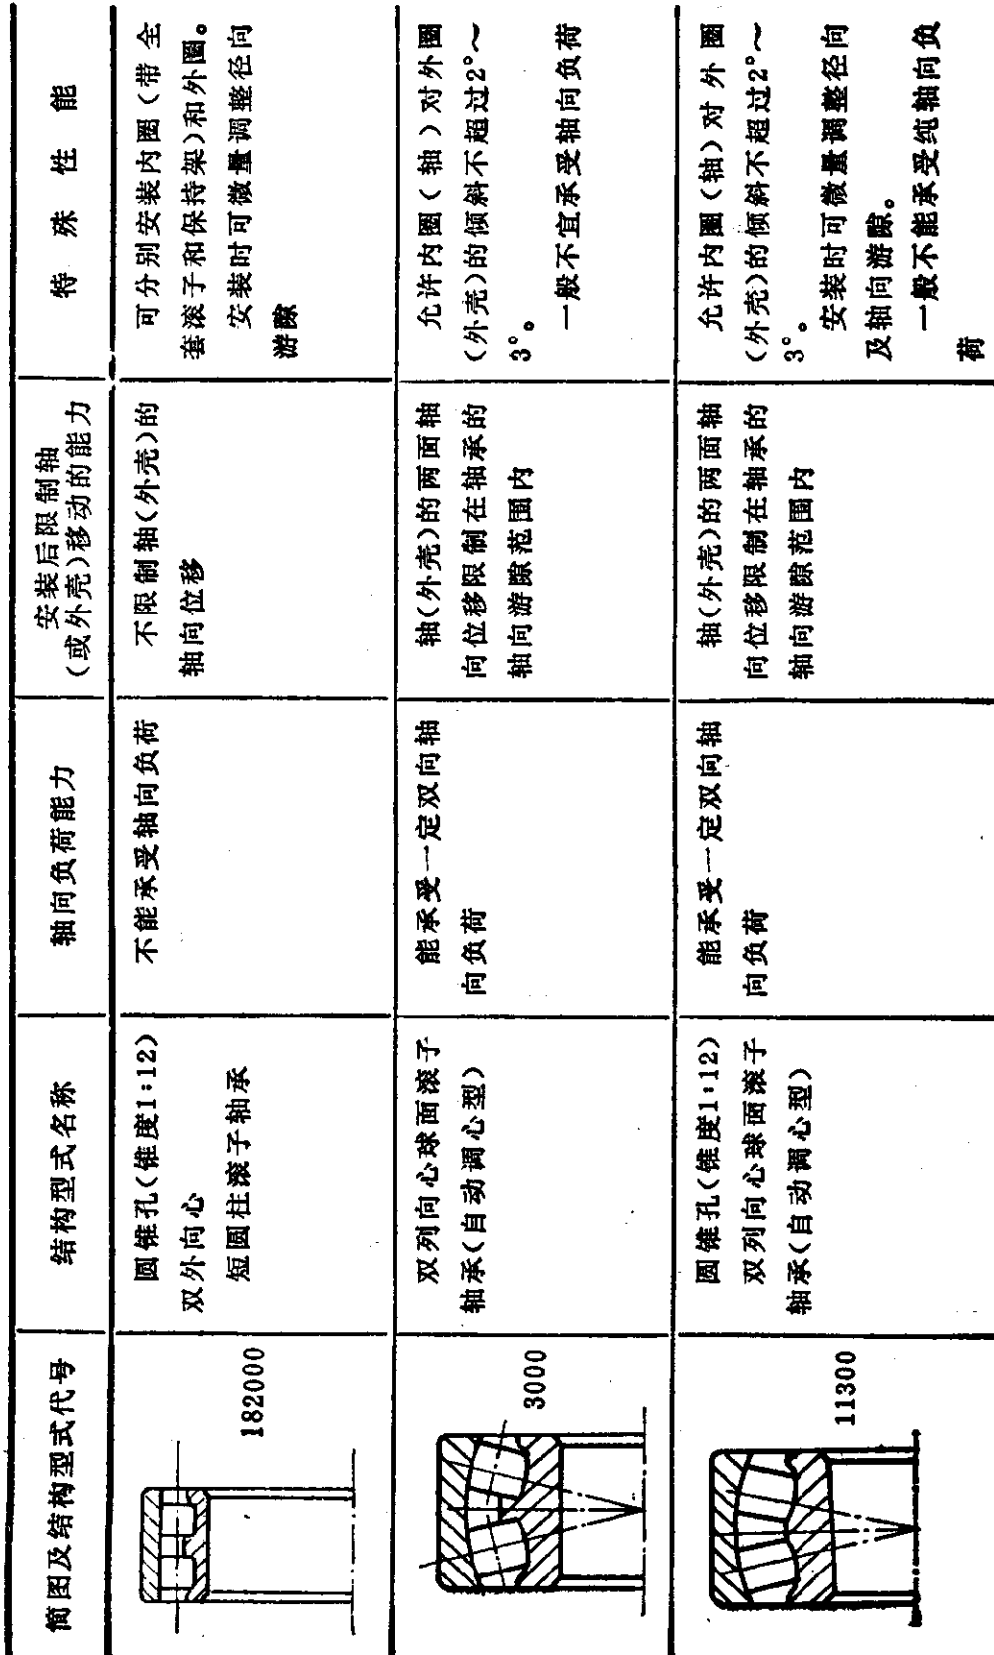 简图及结构型式代号
结构型式名称
轴向负荷能力
安装后限制轴
(或外壳)移动的能力
特殊性能
182000
圆锥孔(锥度1:12)
双外向心
短圆柱滚子轴承
不能承受轴向负荷
不限制轴(外壳)的
轴向位移
可分别安装内圈(带全
套滚子和保持架)和外圈。
安装时可微量调整径向
游隙
3000
双列向心球面滚子
轴承(自动调心型)
能承受一定双向轴
向负荷
轴(外壳)的两面轴
向位移限制在轴承的
轴向游隙范围内
允许内圈(轴)对外圈
(外壳)的倾斜不超过2°～
3°。
一般不宜承受轴向负荷
11300
圆锥孔(锥度1:12)
双列向心球面滚子
轴承(自动调心型)
能承受一定双向轴
向负荷
轴(外壳)的两面轴
向位移限制在轴承的
轴向游隙范围内
允许内圈(轴)对外圈
(外壳)的倾斜不超过2°～
3°。
安装时可微量调整径向
及轴向游隙。
一般不能承受纯轴向负
荷